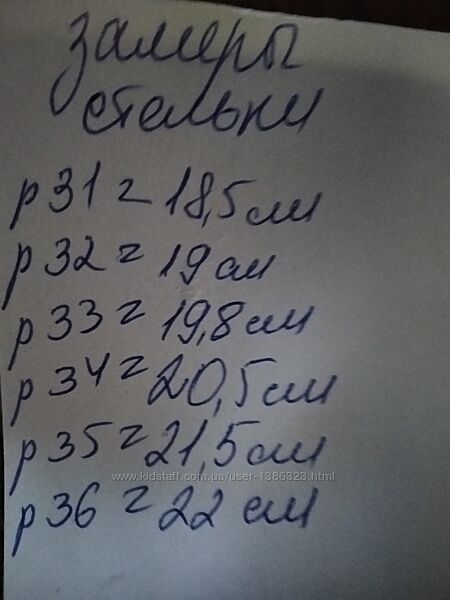 замеры
стельки
р 31 = 18,5 см
р 32 = 19 см
р 33 = 19,8 см
р 34 = 20,5 см
р 35 = 21,5 см
www.kidstaff.com.ua/user-1386323.html
р 36 = 22 см